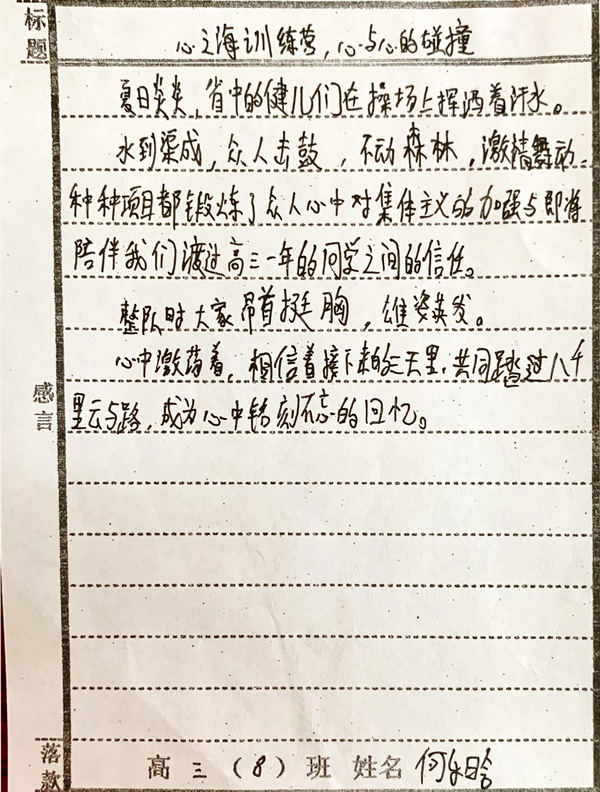 标题
心之海训练营，心与心的碰撞
夏日炎炎，省中的健儿们在操场上挥洒着汗水。
水到渠成，众人击鼓，不动森林，激情舞动，
种种项目都锻炼了众人心中对集体主义的加强与即将
陪伴我们渡过高三一年的同学之间的信任。
整队时大家昂首挺胸，雄姿英发。
心中激荡着，相信着接下来的三天里，共同踏过八千
感言
里云与路，成为心中铭刻不忘的回忆。
落款
高三（8）班 姓名 何